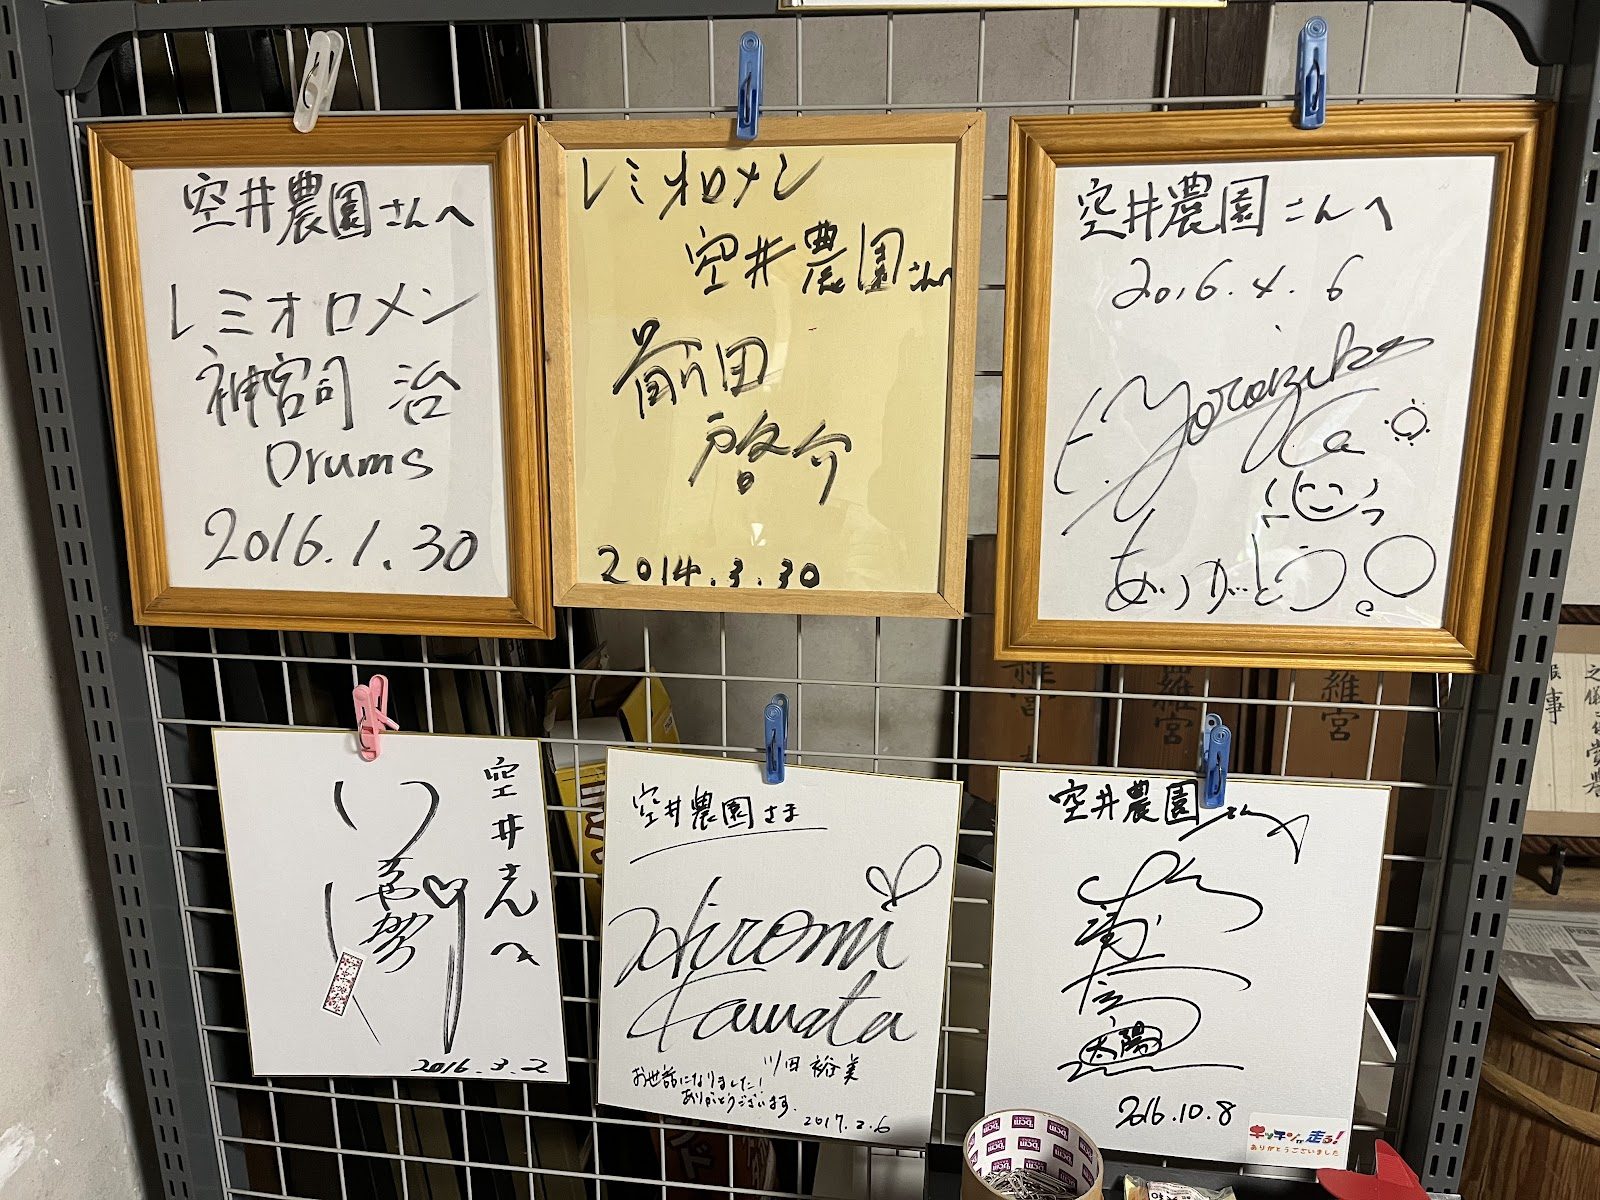 空井農園さんへ
レミオロメン
神宮司 治
Drums
2016.1.30
レミオロメン
空井農園さんへ
前田
啓介
2014.3.30
空井農園さんへ
2016.4.6
ありがとう
空井さんへ
2016.3.2
空井農園さま
Hiromi
Kawata
川田裕美
お世話になりました!
ありがとうございます.
2017.2.6
空井農園さんへ
太陽
2016.10.8
キッチンが走る!
ありがとうございました
羅宮
羅宮